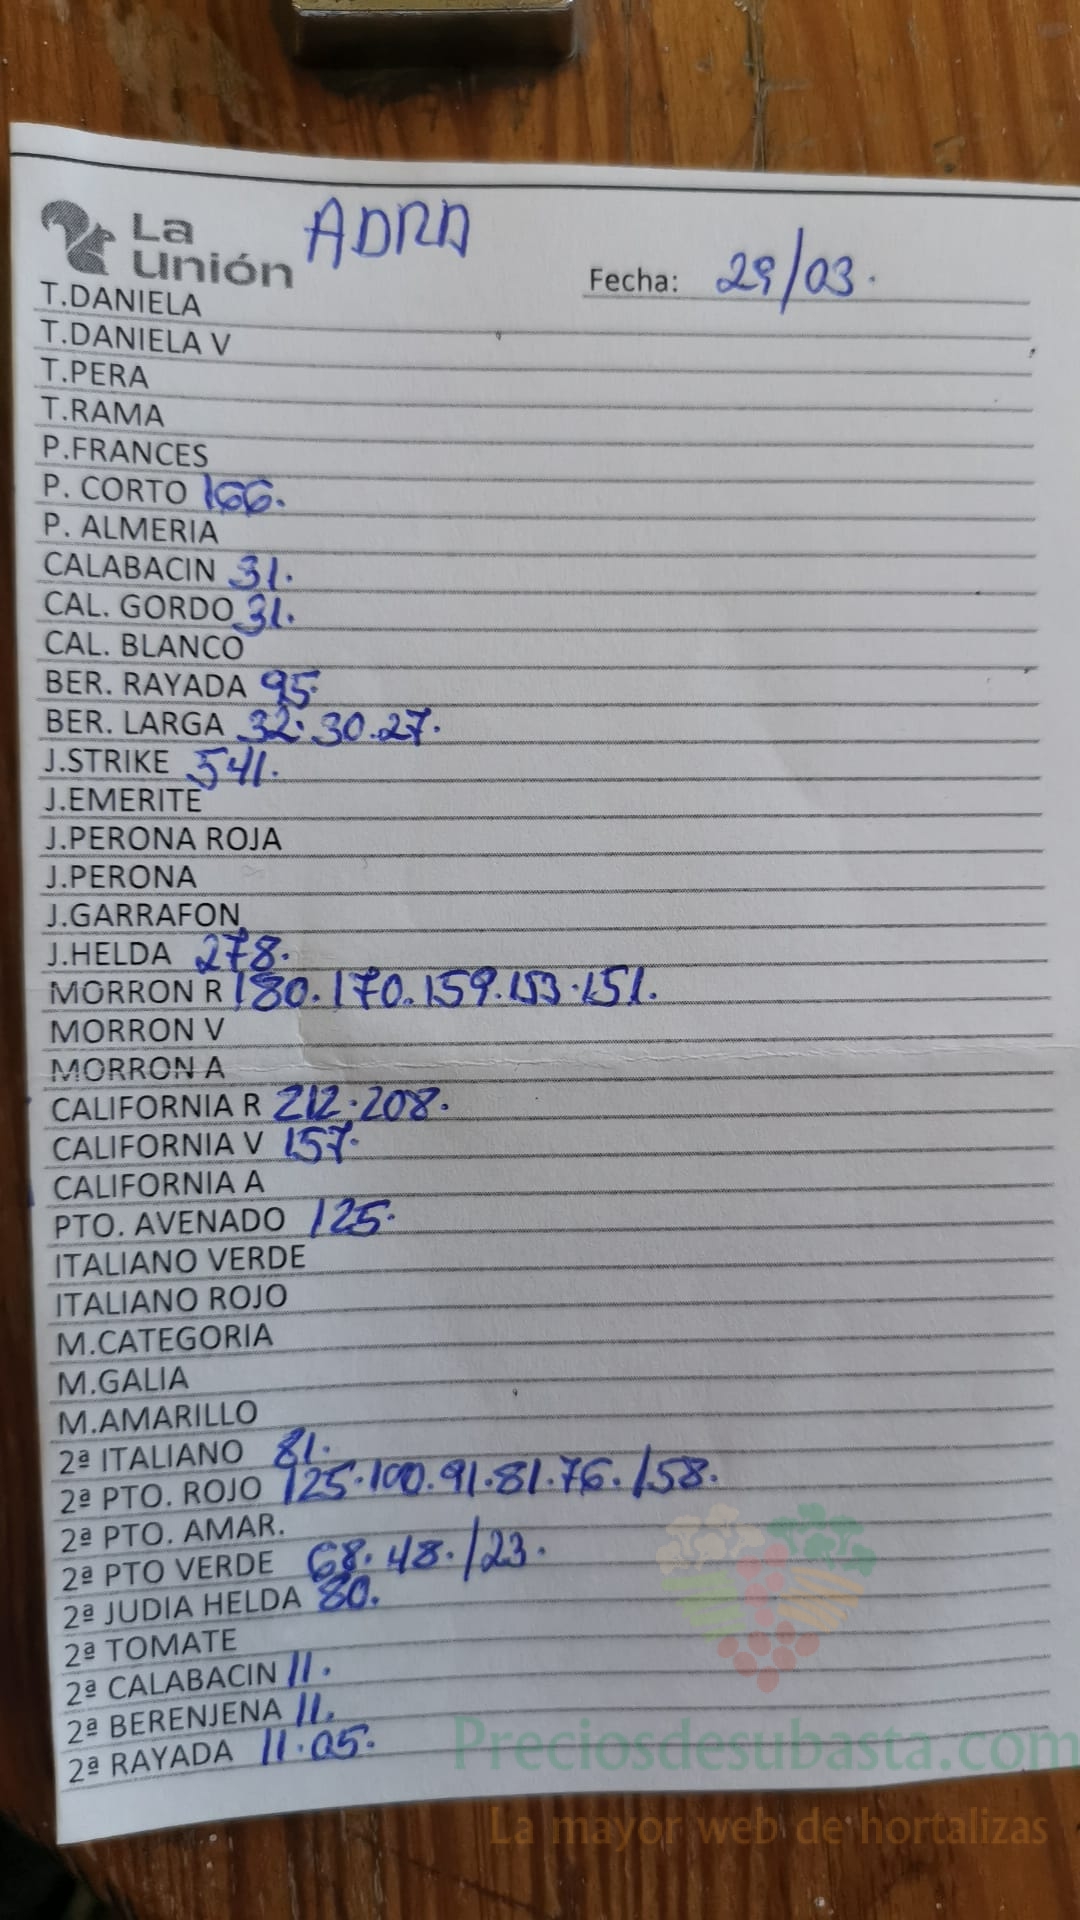 La Unión ADRA
Fecha: 29/03.
T.DANIELA
T.DANIELA V
T.PERA
T.RAMA
P.FRANCES
P. CORTO 166.
P. ALMERIA
CALABACIN 31.
CAL. GORDO 31.
CAL. BLANCO
BER. RAYADA 95.
BER. LARGA 32. 30. 27.
J.STRIKE 541.
J.EMERITE
J.PERONA ROJA
J.PERONA
J.GARRAFON
J.HELDA 278.
MORRON R 180. 170. 159. 153. 151.
MORRON V
MORRON A
CALIFORNIA R 212. 208.
CALIFORNIA V 157.
CALIFORNIA A
PTO. AVENADO 125.
ITALIANO VERDE
ITALIANO ROJO
M.CATEGORIA
M.GALIA
M.AMARILLO
2ª ITALIANO 81.
2ª PTO. ROJO 125. 100. 91. 81. 76. /58.
2ª PTO. AMAR.
2ª PTO VERDE 68. 48. /23.
2ª JUDIA HELDA 80.
2ª TOMATE
2ª CALABACIN 11.
2ª BERENJENA 11.
2ª RAYADA 11. 05.
Preciosdesubasta.com
La mayor web de hortalizas